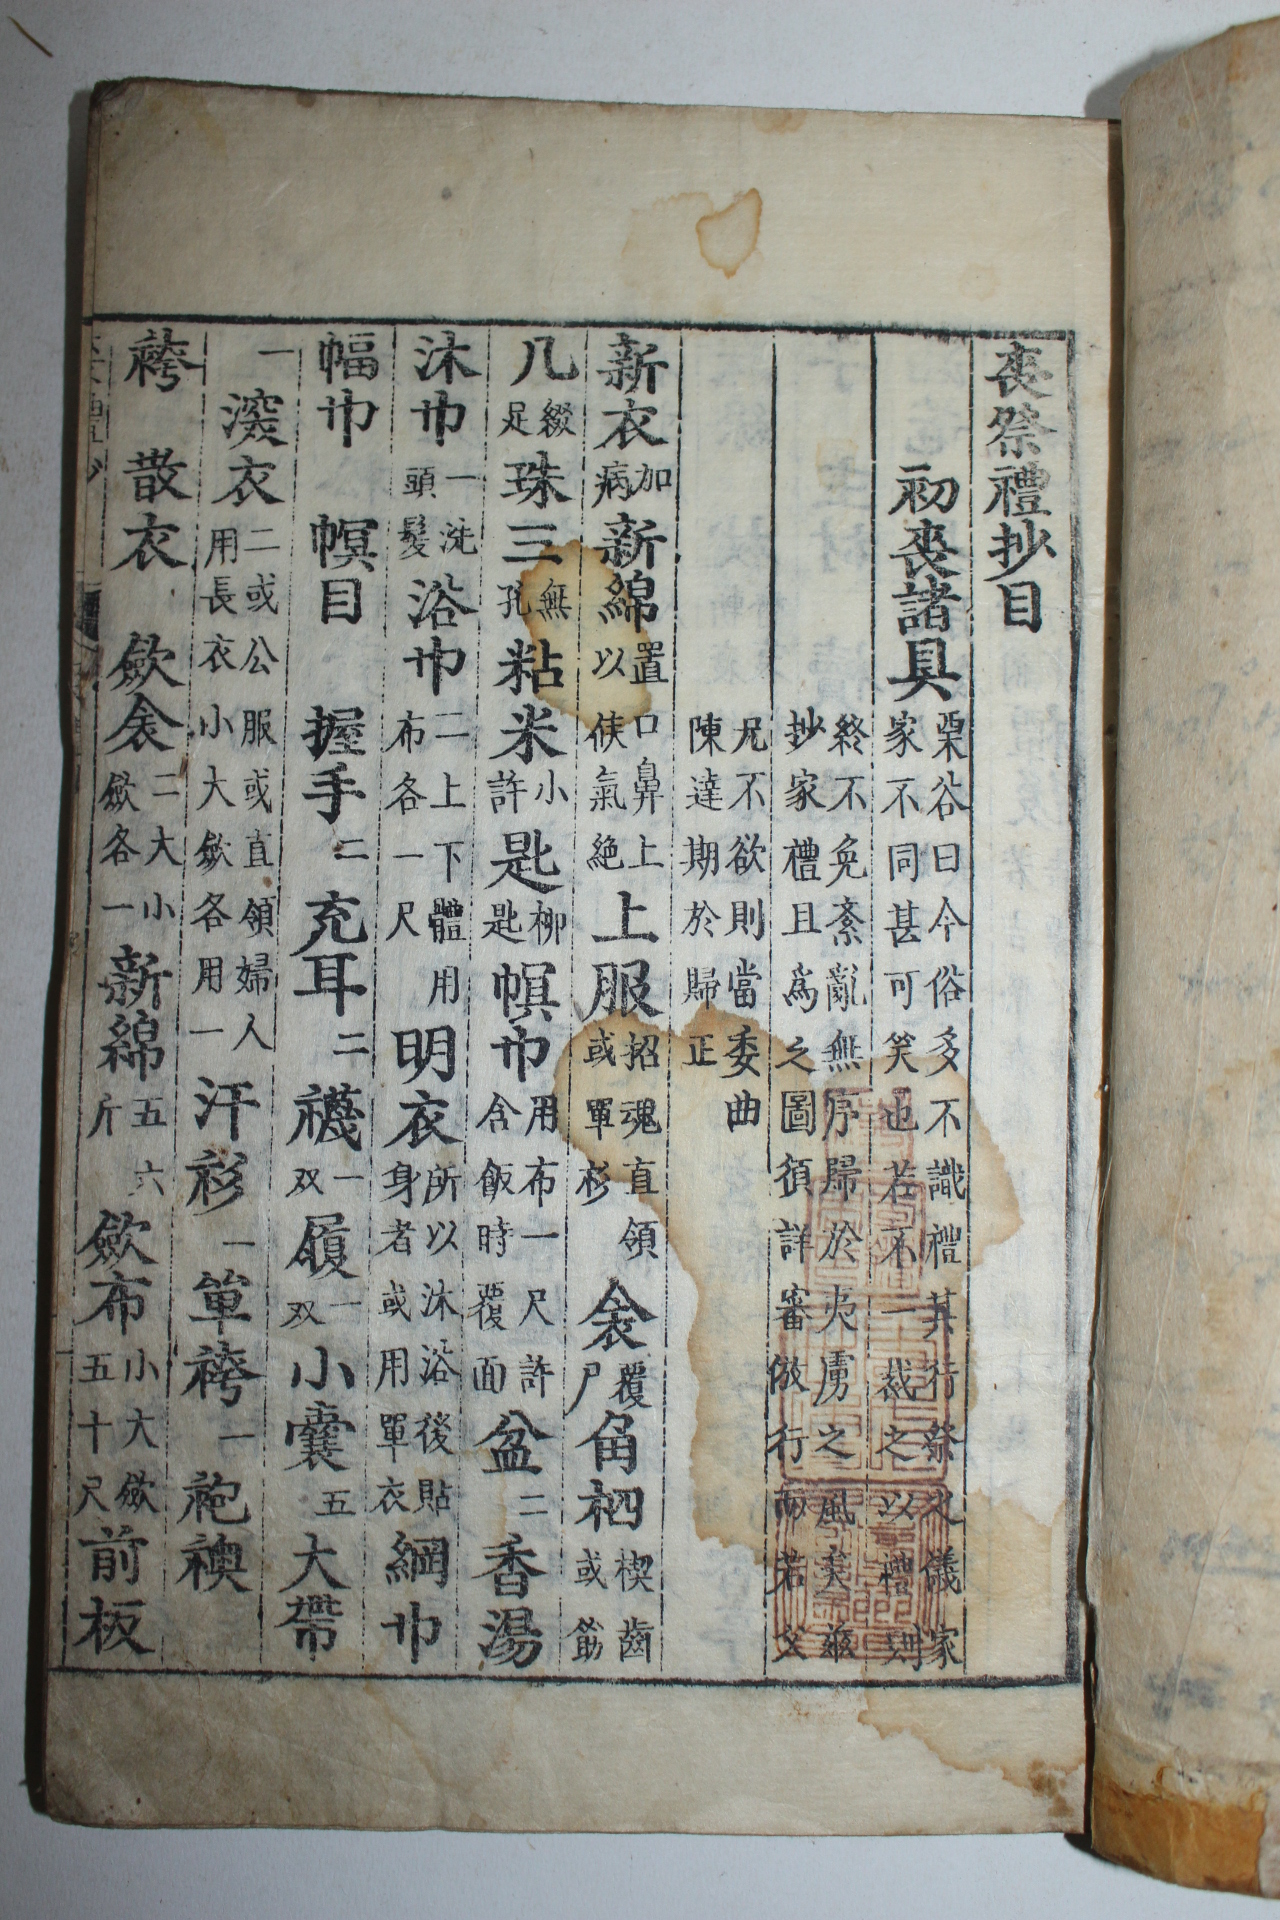 喪祭禮抄目
初喪諸具 栗谷曰今俗多不識禮其行祭之儀家
家不同甚可笑也若不一裁之以禮則
終不免紊亂無序歸於夷虜之風矣玆
抄家禮且爲之圖須詳審倣行而若父
兄不欲則當委曲
陳達期於歸正
新衣 加病 新綿 置口鼻上以候氣絶 上服 招魂直領或單衫 衾 覆尸 角柶 楔齒或筯
几 綴足 珠三 無孔 粘米 小許 匙 柳匙 幎巾 用布一尺許含飯時覆面 盆 二 香湯
沐巾 一洗頭髮 浴巾 二上下體用布各一尺 明衣 所以沐浴後貼身者或用單衣 網巾
幅巾 幎目 握手 二 充耳 二 襪 一双 履 一双 小囊 五 大帶
一 深衣 二或公服或直領婦人用長衣小大斂各用一 汗衫 一 單袴 一 袍襖
袴 散衣 斂衾 二大小斂各一 新綿 五六斤 斂布 小大斂五十尺 前板